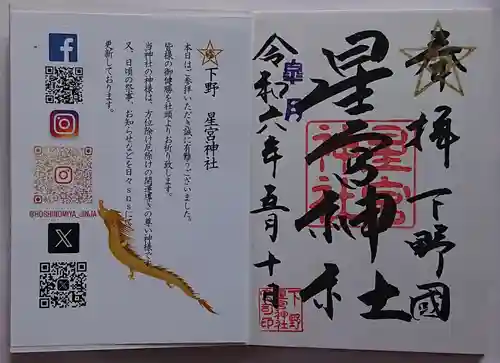 奉拝 下野國
星宮神社
星宮神社
皐月
令和六年五月十日
下野
星宮神社
宮司印
下野 星宮神社
本日はご参拝いただき誠に有難うございました。
皆様の御健勝を社頭よりお祈り致します。
当神社の神様は、方位除け厄除けの開運導きの尊い神様で
又、日頃の祭事、お知らせなどを日々snsに
更新しております。
@HOSHINOMIYA_JINJA